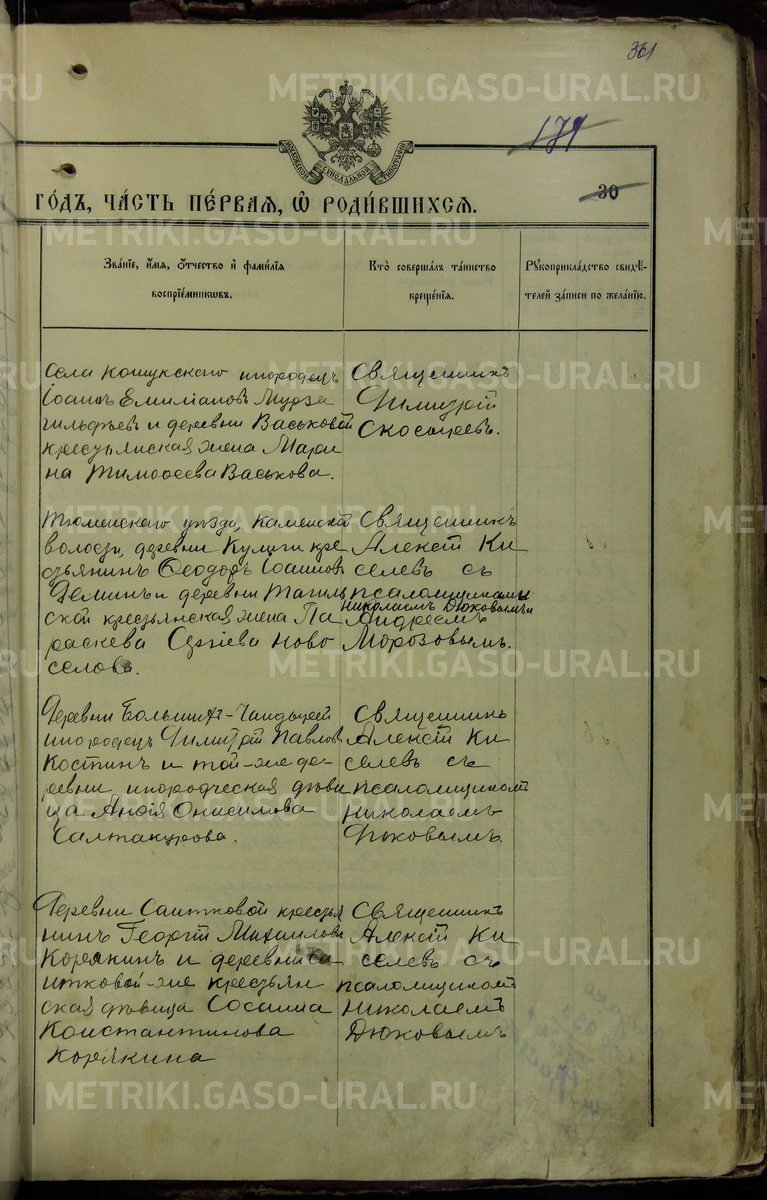 361
METRIKI.GASO-URAL.RU
171
МОСКОВСКОЙ СѴНОДАЛЬНОЙ ТИПОГРАФІИ
30
ГО́ДЪ, ЧА́СТЬ ПЕ́РВАЯ, Ѡ РОДИ́ВШИХСЯ.
Зва́нїе, и́мѧ, ѻ́тчество и҆ фами́лїѧ
воспрїе́мникѡвъ.
Кто̀ соверша́лъ та́инство
креще́нїѧ.
Рꙋкоприкла́дство свидѣ́-
телей за́писи по жела́нїю.
Села Кошукскаго инородецъ
Іоаннъ Емиліановъ Мурза
гильдѣевъ и деревни Васьковой
крестьянская жена Мари
на Тимоѳеева Васькова.
Священникъ
Димитрій
Скосыревъ.
Тюменскаго уѣзда, Каменской
волости, деревни Кулиги кре
стьянинъ Ѳеодоръ Іоаннов
Деминъ и деревни Тагиль
ской крестьянская жена Па
раскева Сергіева Ново
селова.
Священникъ
Алексій Ки
селевъ съ
псаломщиками
Николаемъ Дюковымъ и
Андреемъ
Морозовымъ.
Деревни
инородецъ Димитрій Павлов
Костинъ и той-же де-
ревни инородческая дѣви
ца Анфія Онисимова
Салтакурова.
Священникъ
Алексій Ки
селевъ съ
псаломщикомъ
Николаемъ
Дюковымъ.
Деревни Саитковой крестья
нинъ Георгій Михаиловъ
Корякинъ и деревни Са
итковой-же крестьян
ская дѣвица
Константинова
Корякина
Священникъ
Алексій Ки
селевъ съ
псаломщикомъ
Николаемъ
Дюковымъ